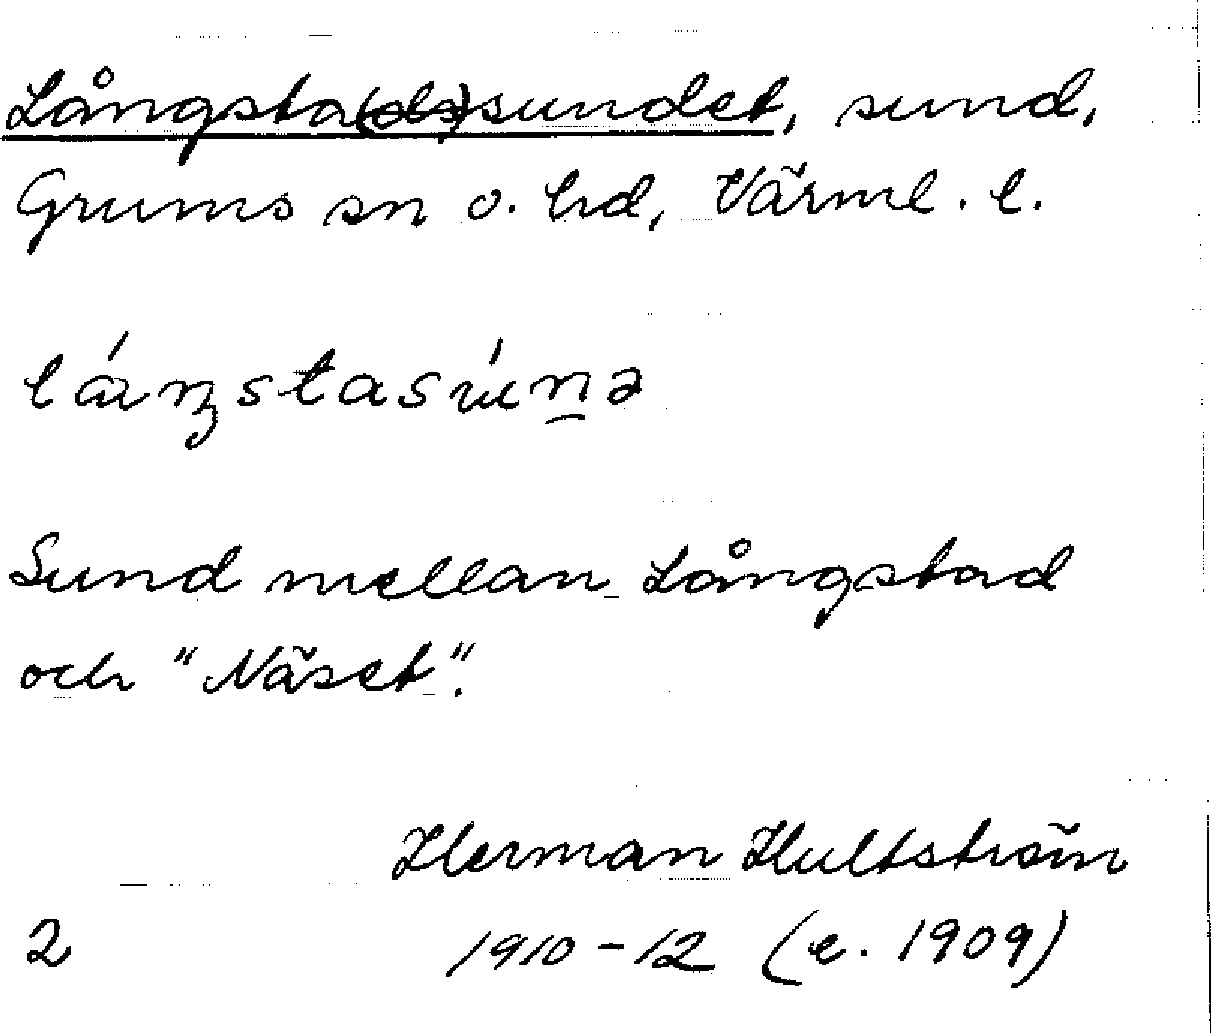 Långsta(ds)sundet, sund,
Grums sn o. hd, Värml. l.
lánŋstasúṉə
Sund mellan Långstad
och "Näset".
Herman Hultström
2 1910-12 (e. 1909)